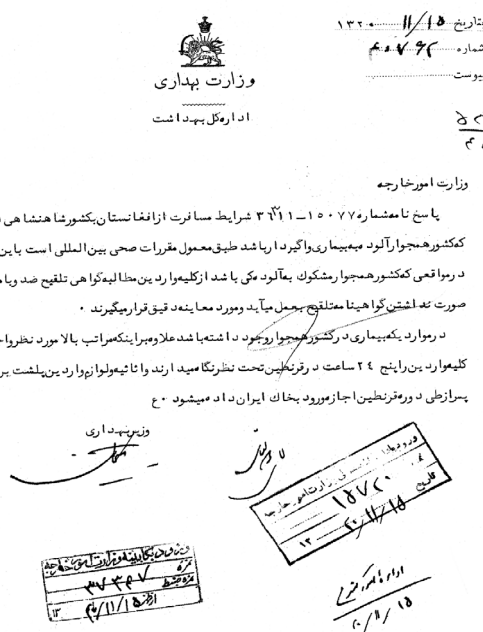 بتاریخ ۱۵/۱۱/۱۳۲۰
شماره ۴۰۷۶۲
پیوست
وزارت بهداری
اداره کل بهداشت
وزارت امور خارجه
پاسخ نامه شماره ۱۵۰۷۷ـ۳۶۲۱۱ شرایط مسافرت از افغانستان بکشور شاهنشاهی
که کشور همجوار آلوده به بیماری واگیردار باشد طبق معمول مقررات صحی بین المللی است باین
در مواقعی که کشور همجوار مشکوک به آلودگی باشد از کلیه واردین مطالبه گواهی تلقیح ضد وبا
صورت نداشتن گواهینامه تلقیح بعمل میآید و مورد معاینه دقیق قرار میگیرند ۰
در مواردیکه بیماری در کشور همجوار وجود داشته باشد علاوه بر اینکه مراتب بالا مورد نظر
کلیه واردین را پنج ۲۴ ساعت در قرنطین تحت نظر نگاه میدارند و اثاثیه و لوازم واردین پلشت بر
پس از طی دوره قرنطین اجازه ورود بخاک ایران داده میشود ۰ع
وزیر بهداری
ورود بدفتر وزارت امور خارجه
شماره ۱۵۷۲۰
تاریخ ۱۵/۱۱/۲۰
۱۳
ورود بکابینه وزارت امور خارجه
نمره ۳۷۳۶۷
۱۵/۱۱/۲۰
۱۳
۱۵/۱۱/۲۰